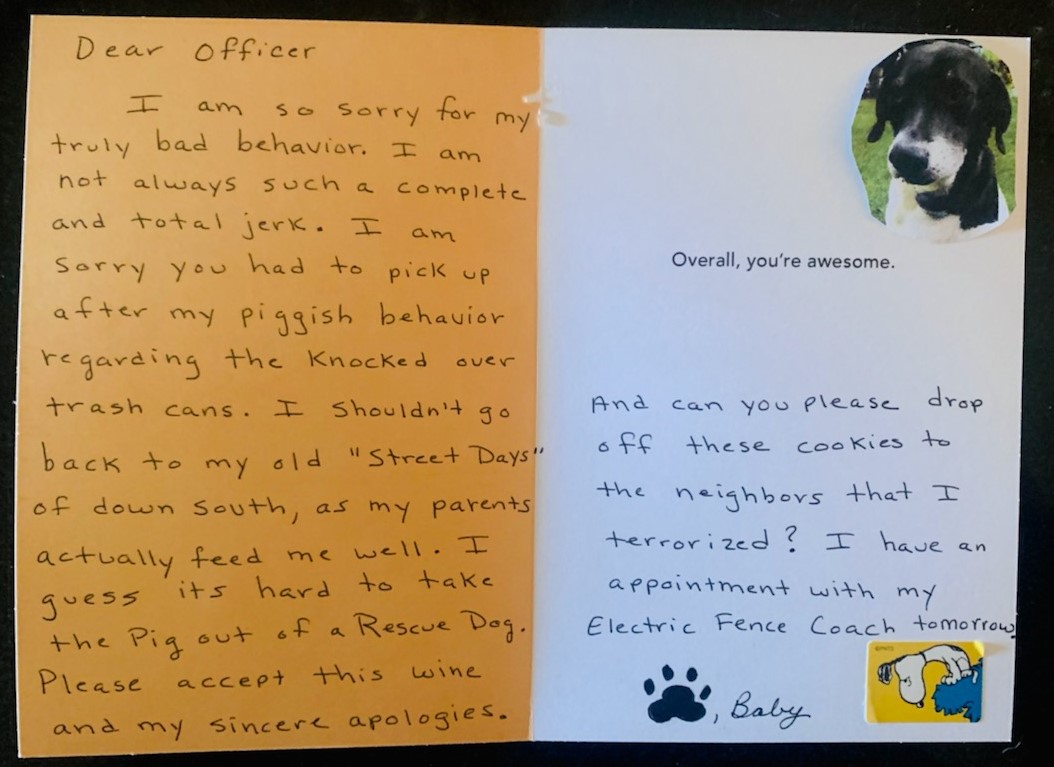 Dear Officer
I am so sorry for my
truly bad behavior. I am
not always such a complete
and total jerk. I am
sorry you had to pick up
after my piggish behavior
regarding the knocked over
trash cans. I shouldn't go
back to my old "Street Days"
of down south, as my parents
actually feed me well. I
guess its hard to take
the Pig out of a Rescue Dog.
Please accept this wine
and my sincere apologies.
Overall, you're awesome.
And can you please drop
off these cookies to
the neighbors that I
terrorized? I have an
appointment with my
Electric Fence Coach tomorrow.
, Baby